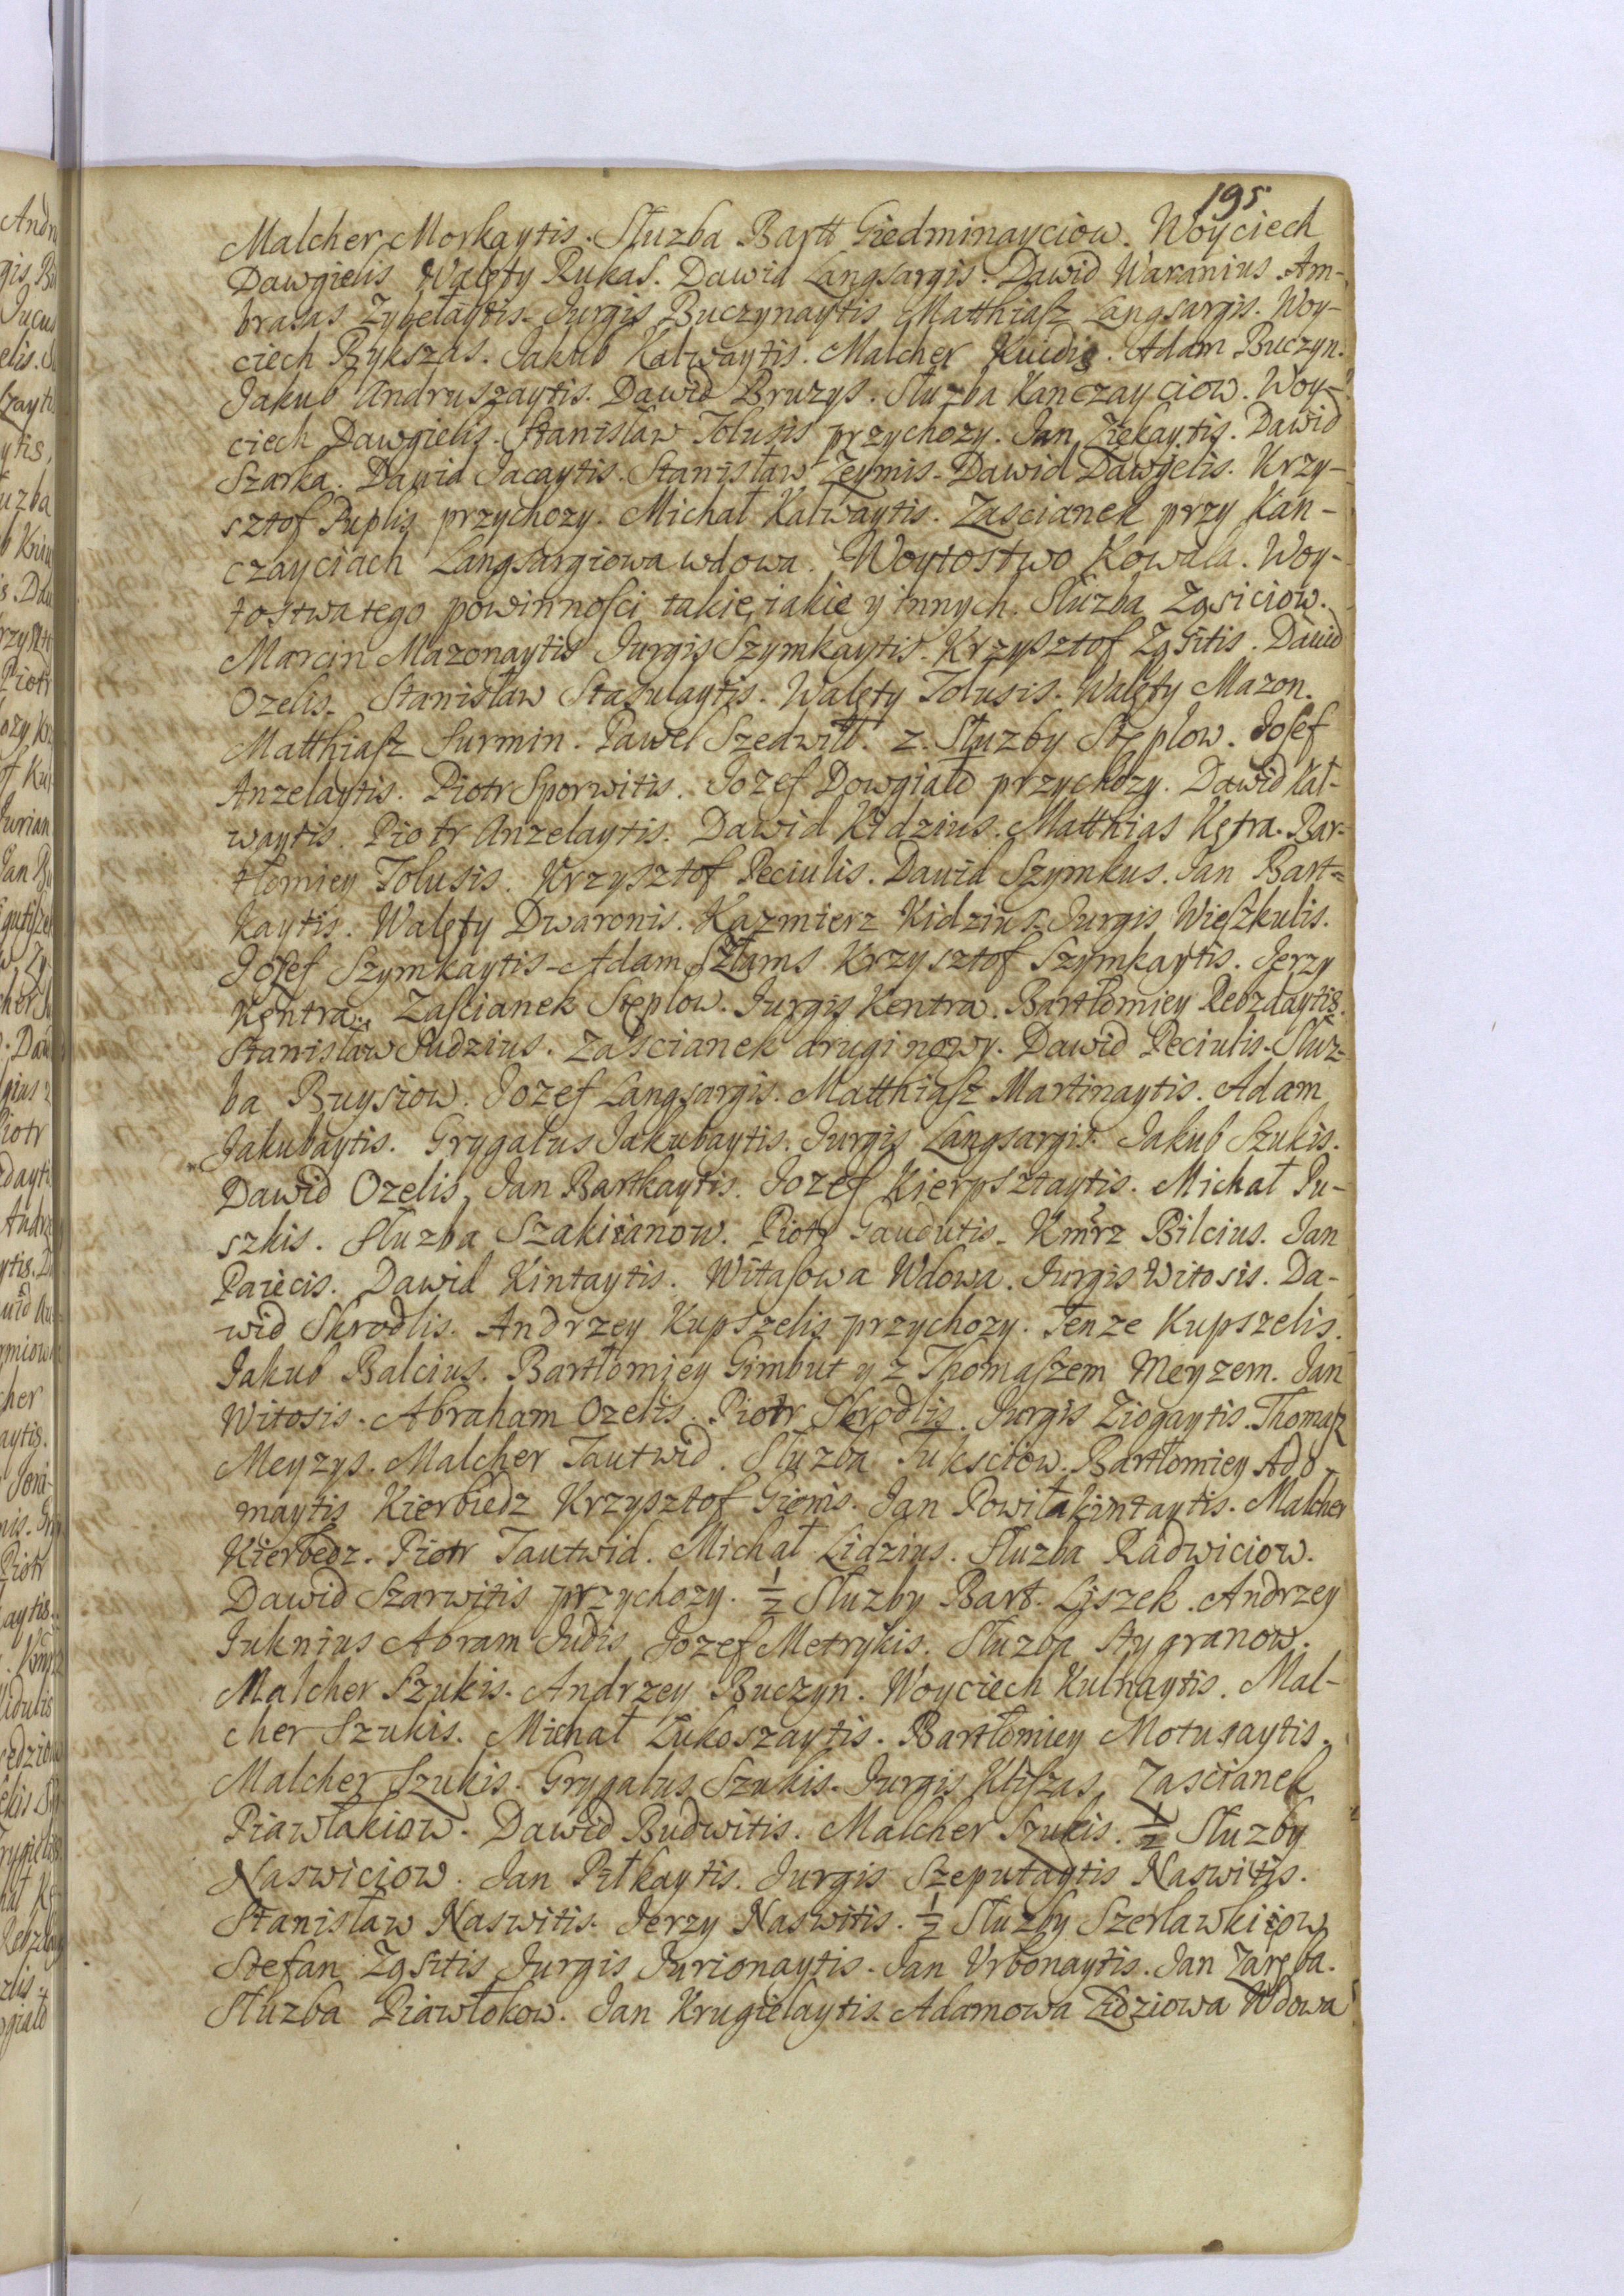 195
Malcher Morkaytis. Służba Bartt Giedminayciow. Woyciech
Dawgielis Walęty Rukas. Dawid Langsargis. Dawid Waranius. Am-
brasas Zybełaytis. Jurgis Buczynaytis Matthiasz Langsargis. Woy-
ciech Rykszas. Jakub Kalwaytis. Malcher Kuidis. Adam Buczyn.
Jakub Andruszaytis. Dawid Bruzys. Słuzba Kanczayciow. Woy-
ciech Dawgielis. Stanisław Tolusis przychozy. Jan Ziekaytis. Dawid
Szarka. Dawid Jacaytis. Stanisław Zeymis. Dawid Dawgielis. Krzy-
sztof Puplis przychozy. Michał Kalwaytis. Zascianek przy Kan-
czayciach Langsargiowa wdowa. Woytostwo Kowala. Woy-
tostwa tego powinnosci takie iakie y innych. Słuzba Ząsiciow.
Marcin Mazonaytis Jurgis Szymkaytis. Krzysztof Ząsitis. Dawid
Ozelis. Stanisław Stasulaytis. Walęty Tolusis. Walęty Mazon.
Matthiasz Surmin. Paweł Szedwiłł. z. Słuzby Stęplow. Josef
Anzelaytis. Piotr Sporwitis. Jozef Dowgiałd przychozy. Dawid Kal-
waytis. Piotr Anzelaytis. Dawid Kidzius. Matthias Kętra. Bar-
tłomiey Tolusis. Krzysztof Peciulis. Dawid Szymkus. Jan Bart=
kaytis. Walęty Dwaronis. Kazmierz Kidzius. Jurgis Wieszkulis.
Josef Szymkaytis. Adam Szłams Krzysztof Szymkaytis. Jerzy
Kentra. Zascianek Stęplow. Jurgis Kentra. Bartłomiey Rebzdaytis.
Stanisław Pudzius. Zascianek drugi nowy. Dawid Peciulis. Słuz-
ba Buysiow. Jozef Langsargis. Matthiasz Martinaytis. Adam
Jakubaytis. Grygalus Jakubaytis. Jurgis Langsargis. Jakub Szukis.
Dawid Ozelis, Jan Bartkaytis. Jozef Kierpsztaytis. Michał Pu-
szkis. Słuzba Szakiianow. Piotr Gaudutis. Kmrz Bilcius. Jan
Paiecis. Dawid Kintaytis. Witasowa Wdowa. Jurgis Witosis. Da-
wid Skrodlis. Andrzey Kupszelis przychozy. Tenze Kupszelis.
Jakub Balcius. Bartłomiey Gimbut y z Thomaszem Meyzem. Jan
Witosis. Abraham Ozelis. Piotr Skrodlis. Jurgis Ziogaytis. Thomasz
Meyzys. Malcher Tautwid. Słuzba Juksciow. Bartłomiey Ado-
maytis Kierbiedz Krzysztof Gienis. Jan Powilakintaytis. Malcher
Kierbedz. Piotr Tautwid. Michał Lidzius. Słuzba Radwiciow.
Dawid Szarwitis przychozy. 1/2 Słuzby Bart. Liszek. Andrzey
Juknius Abram Judis Jozef Metrykis. Słuzba Stygranow.
Malcher Szukis. Andrzey Buczyn. Woyciech Kulnaytis. Mal-
cher Szukis. Michał Lukoszaytis. Bartłomiey Motusaytis.
Malcher Szukis. Grygalus Szukis. Jurgis Kliszas. Zascianek
Piawłakiow. Dawid Budwitis. Malcher Szukis. 1/2 Słuzby
Naswiciow. Jan Piłkaytis. Jurgis Szeputaytis Naswitis.
Stanisław Naswitis. Jerzy Naswitis. 1/2 Słuzby Szerlawkiiow
Stefan Ząsitis Jurgis Jurionaytis. Jan Vrbonaytis. Jan Zaręba.
Słuzba Piawłokow. Jan Krugielaytis. Adamowa Lidziowa Wdowa